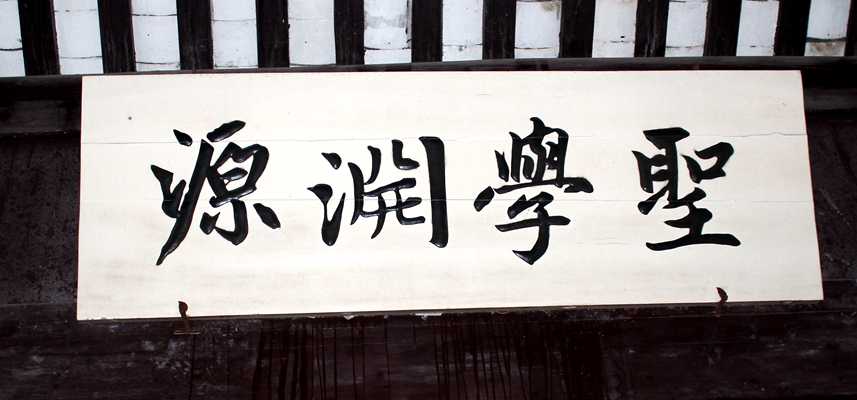 聖學淵源